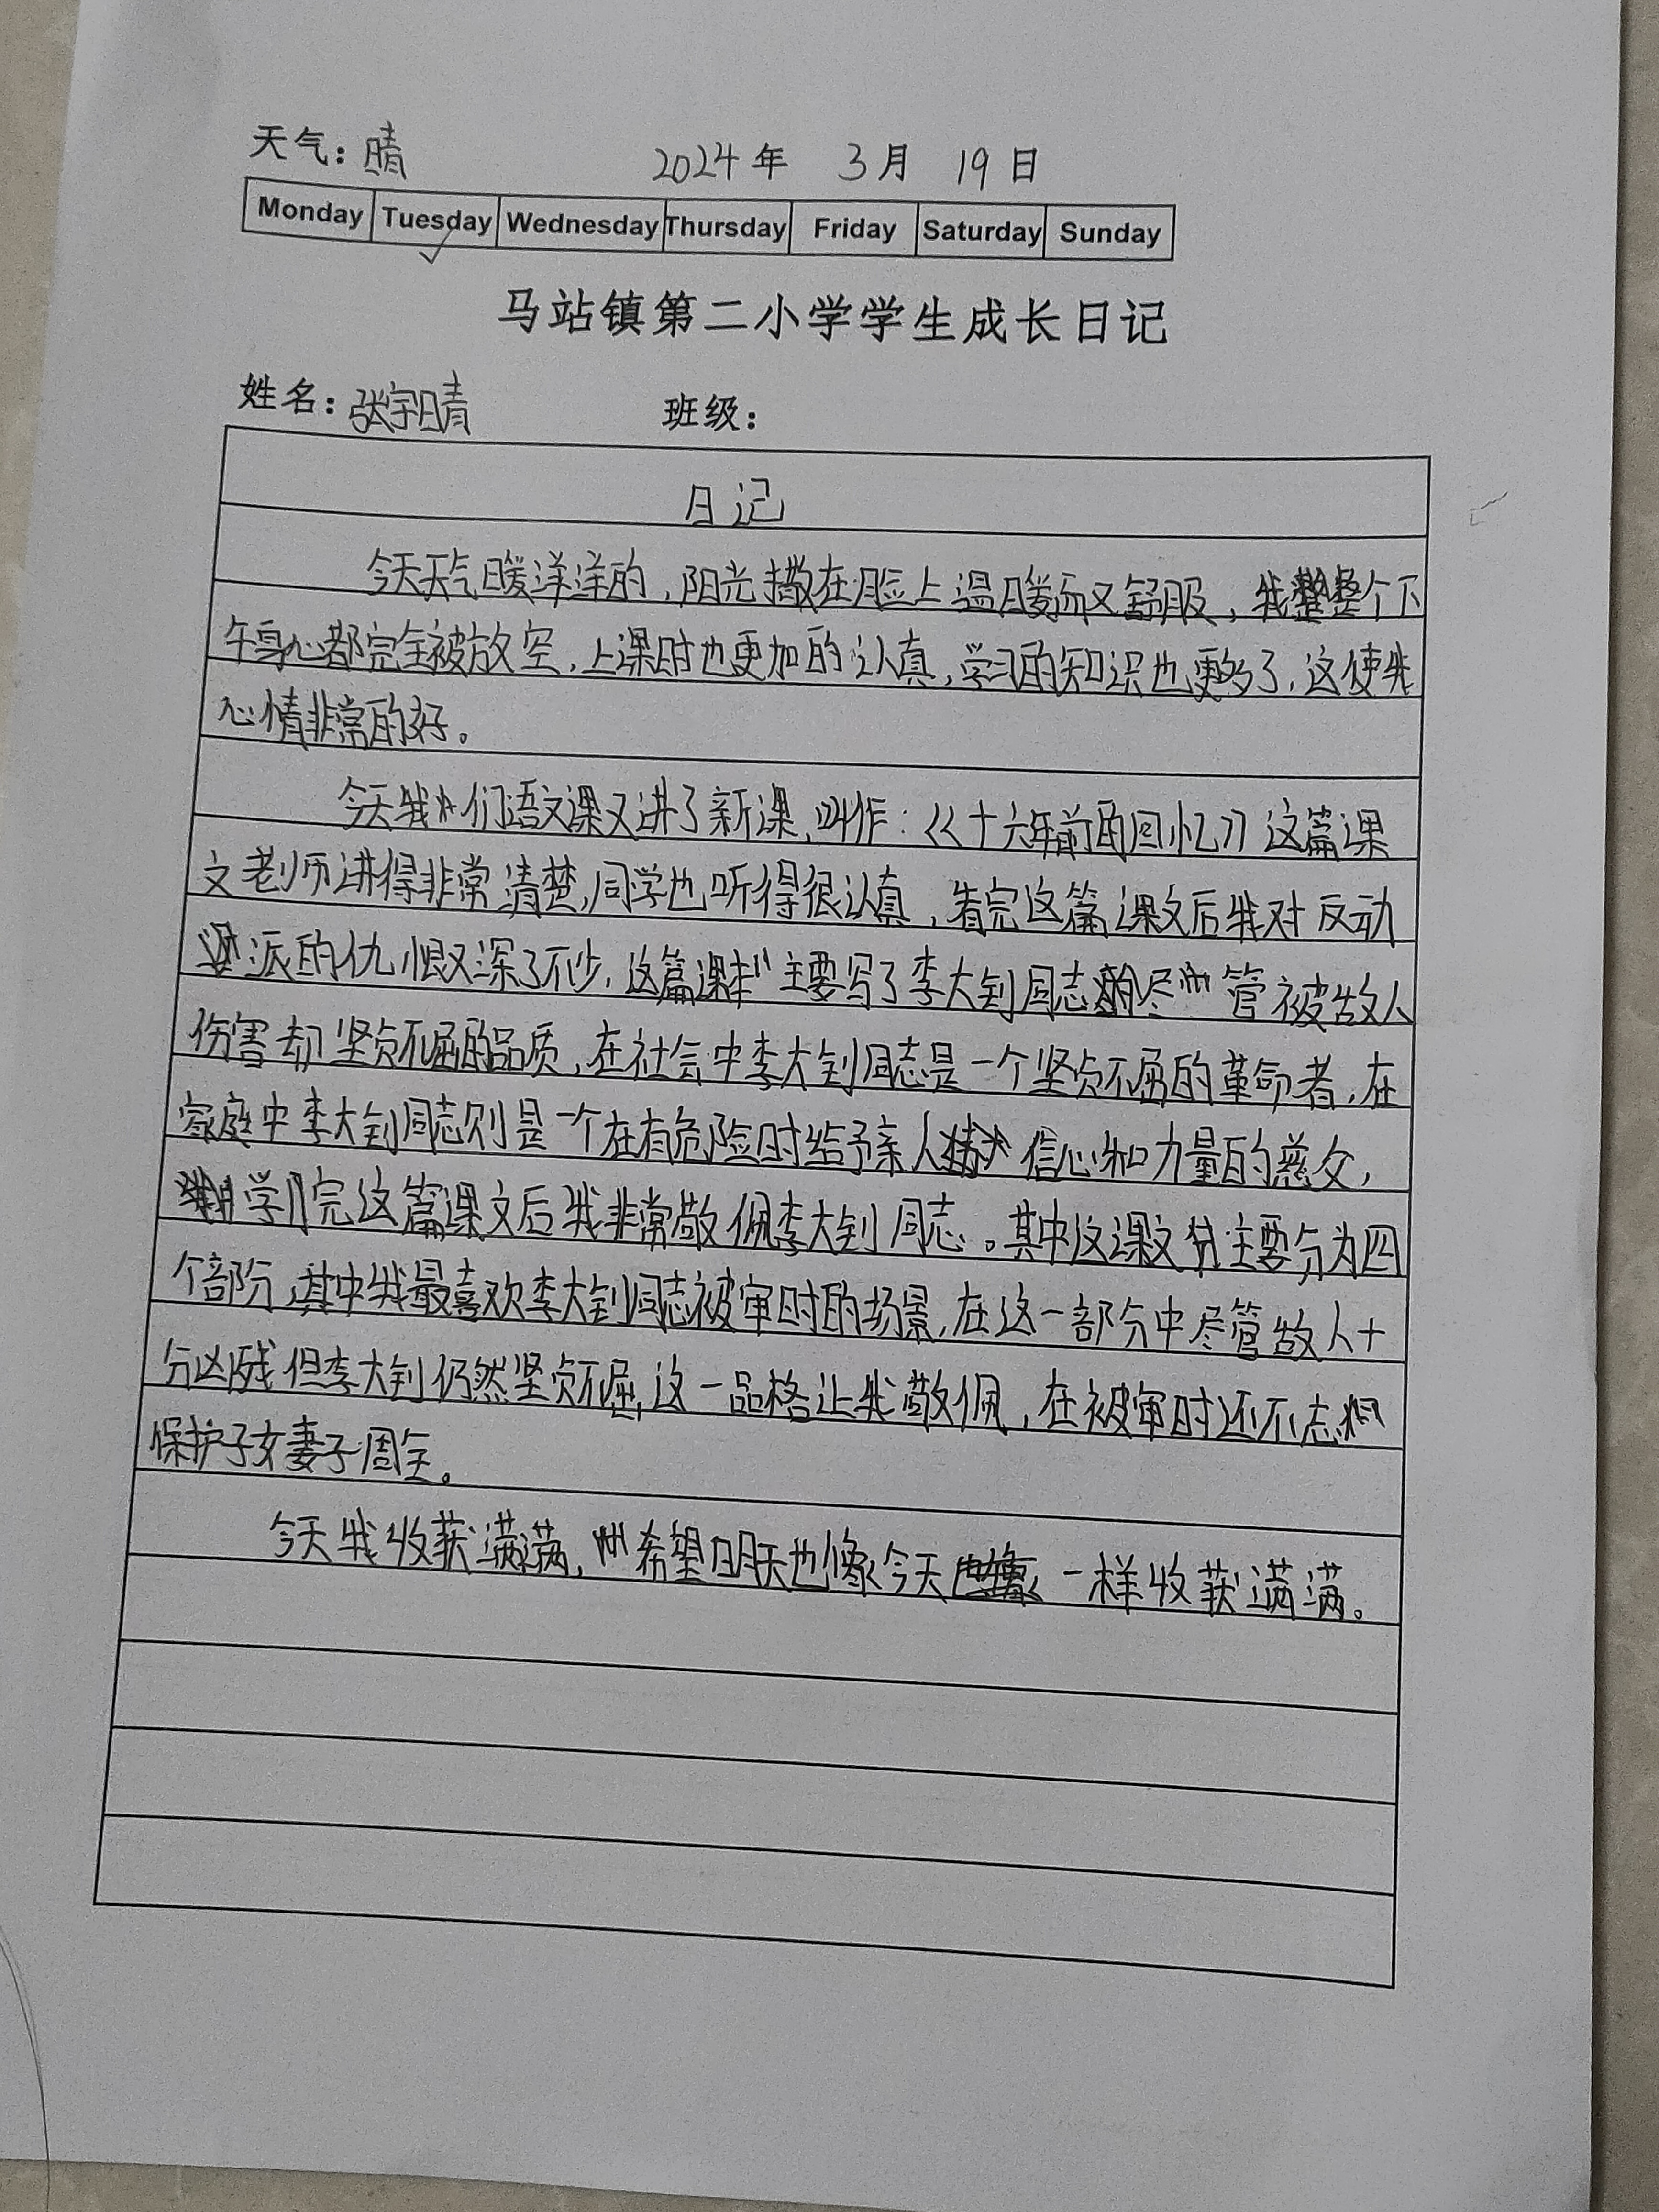 天气：晴 2024年 3月 19日
Monday Tuesday Wednesday Thursday Friday Saturday Sunday
马站镇第二小学学生成长日记
姓名：张宇晴 班级：
日记
今天天气暖洋洋的，阳光撒在脸上温暖而又舒服，我整个下
午身心都完全被放空，上课时也更加的认真，学习的知识也更多了，这使我
心情非常的好。
今天我们语文课又讲了新课，叫作：《十六年前的回忆》这篇课
文老师讲得非常清楚，同学也听得很认真，看完这篇课文后我对反动
派的仇恨又深了不少，这篇课主要写了李大钊同志尽管被敌人
伤害却坚贞不屈的品质，在社会中李大钊同志是一个坚贞不屈的革命者，在
家庭中李大钊同志则是一个在有危险时给予亲人信心和力量的慈父，
学完这篇课文后我非常敬佩李大钊同志。其中这课文主要分为四
个部分，其中我最喜欢李大钊同志被审时的场景，在这一部分中尽管敌人十
分凶残但李大钊仍然坚贞不屈，这一品格让我敬佩，在被审时还不忘
保护子女妻子周全。
今天我收获满满，希望明天也像今天一样收获满满。